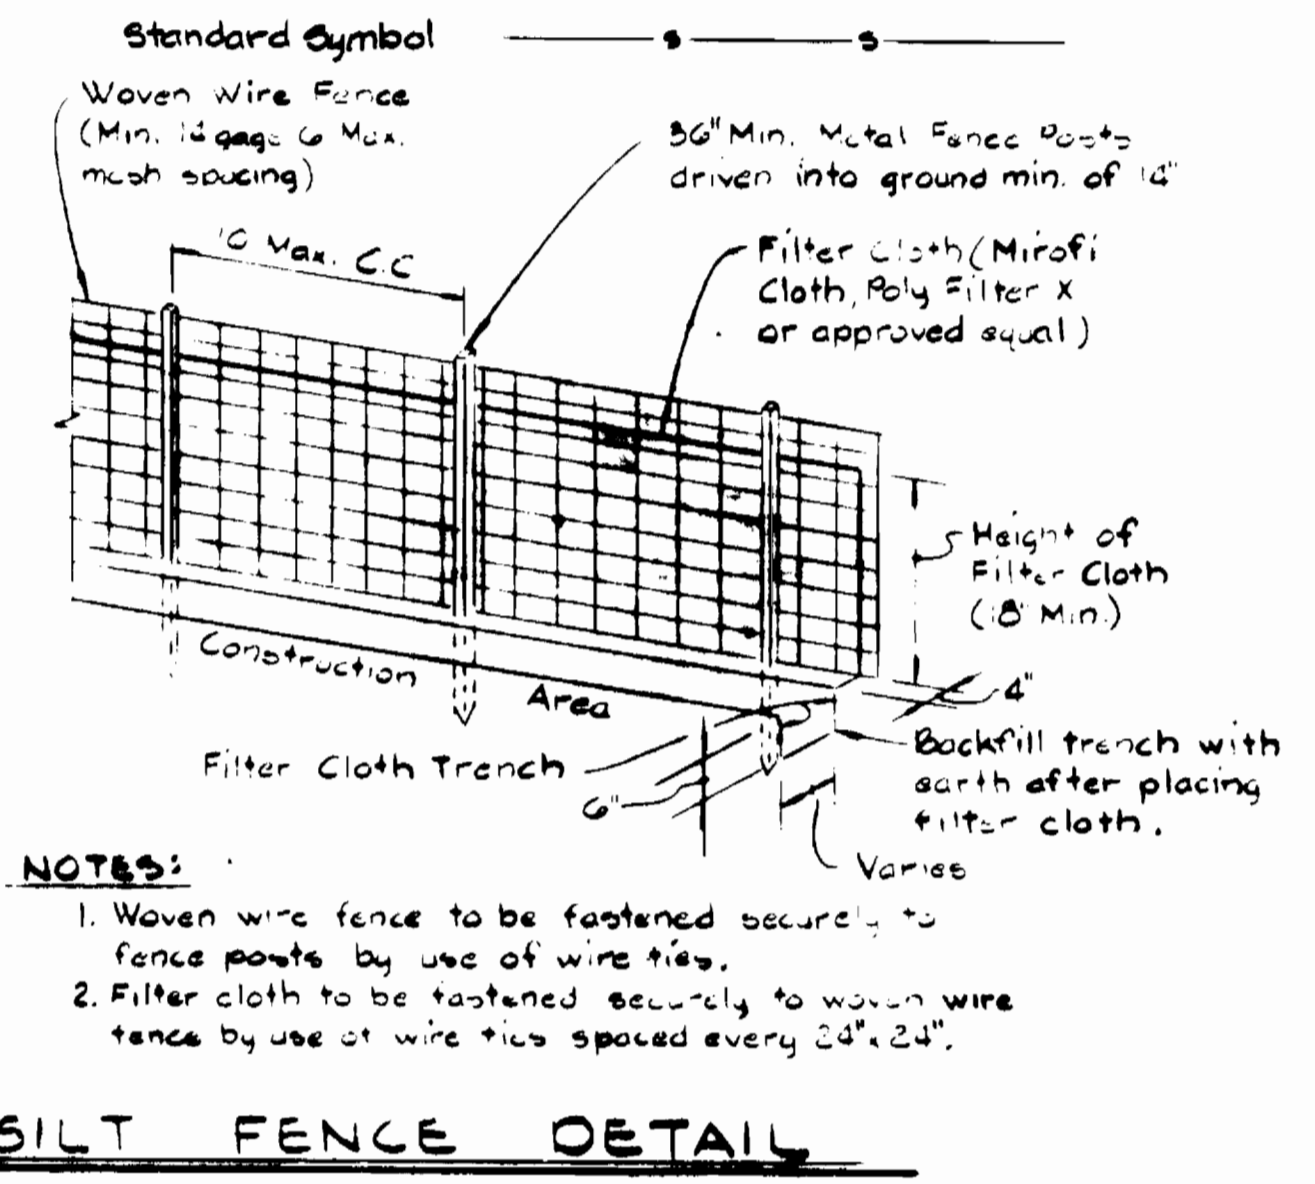 Standard Symbol
S S
Woven Wire Fence
(Min. gage 6 Max.
mesh spacing)
36" Min. Metal Fence Posts
driven into ground min. of
Max. C.C
Filter Cloth (Mirofi
Cloth, Poly Filter X
or approved equal)
Height of
Filter Cloth
(18" Min.)
4"
Construction
Area
Filter Cloth Trench
6"
Backfill trench with
earth after placing
filter cloth.
Varies
NOTES:
1. Woven wire fence to be fastened securely to
fence posts by use of wire ties.
2. Filter cloth to be fastened securely to woven wire
fence by use of wire ties spaced every 24" x 24".
SILT FENCE DETAIL